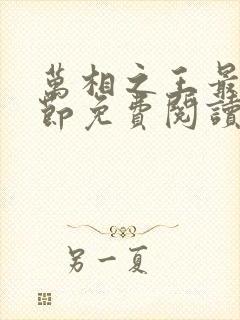 萬相之王最
節免費閱讀
另一夏